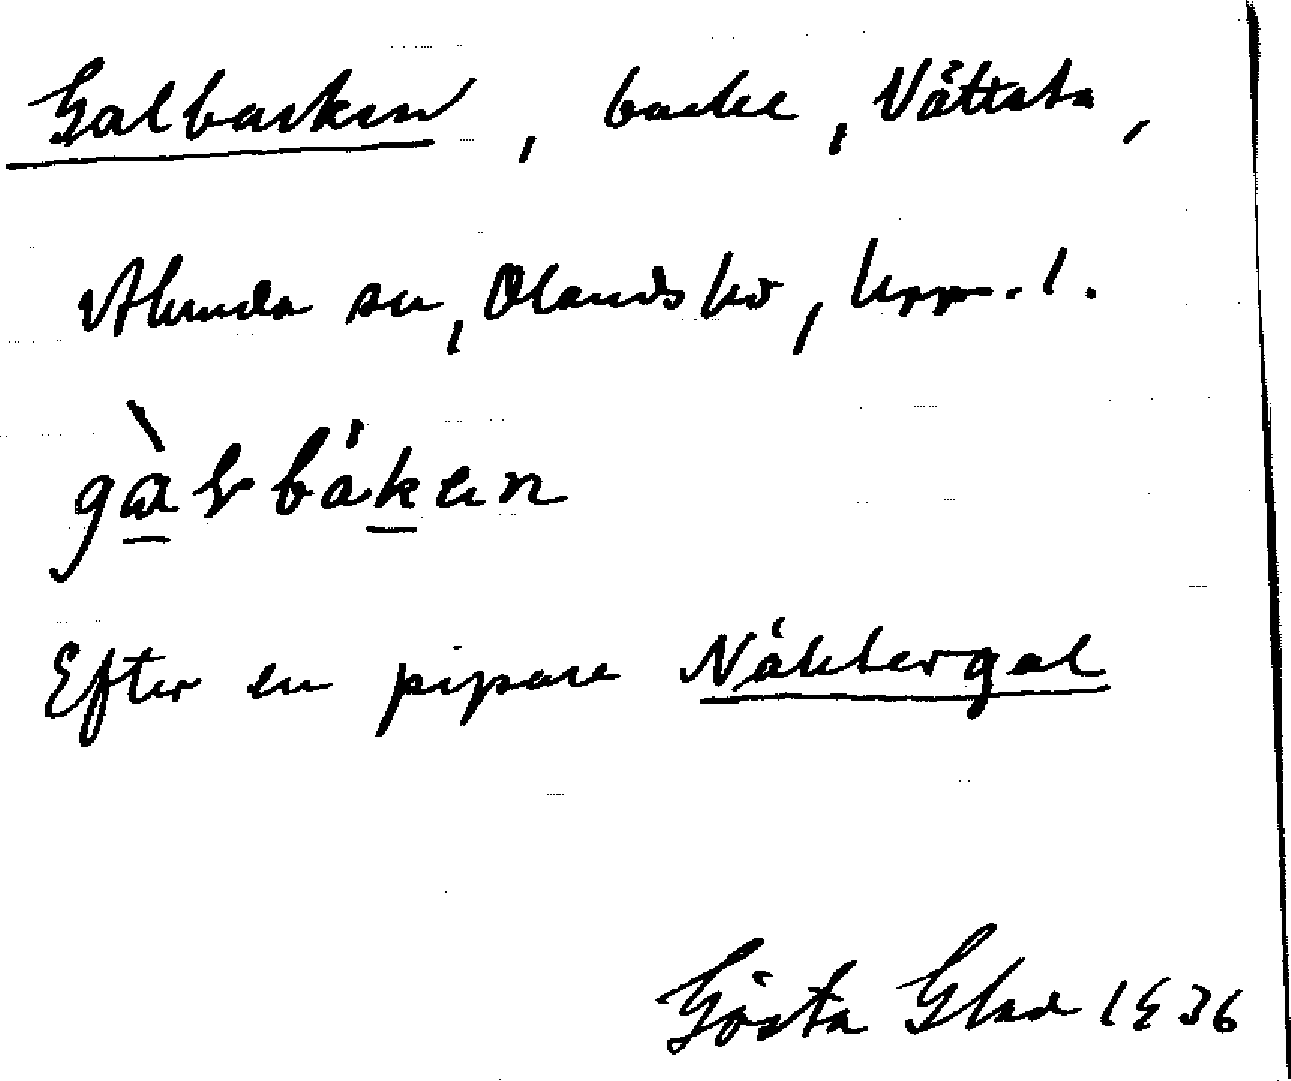 Galbacken, backe, Vättsta,
Alunda sn, Olands hd, Uppl.
Efter en pipare Näktergal
Gösta Glad 1936